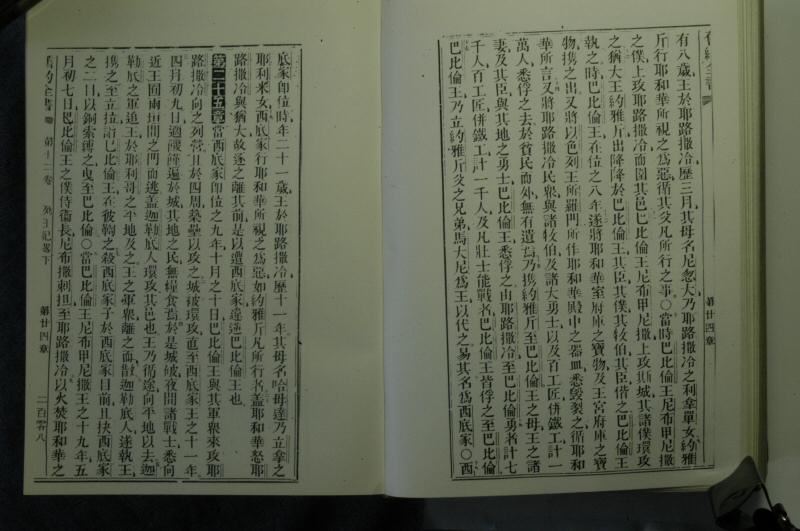 有八歲王於耶路撒冷歷三月其母名尼忽大乃耶路撒冷之利拿單女約雅
斤行耶和華所視之爲惡循其父凡所行之事○當時巴比倫王尼布甲尼撒
之僕上攻耶路撒冷而圍其邑巴比倫王尼布甲尼撒上攻斯城其諸僕環攻
之猶大王約雅斤出降於巴比倫王其臣其僕其牧伯其臣偕之巴比倫王
執之時巴比倫王在位之八年遂將耶和華室府庫之寶物及王宮府庫之寶
物携之出又將以色列王所羅門所作耶和華殿中之器皿悉毀裂之循耶和
華所言又將耶路撒冷民衆與諸牧伯及諸大勇士以及百工匠併鐵工計一
萬人悉俘之去於貧民而外無有遺焉乃携約雅斤至巴比倫王之母王之諸
妻及其臣與其地之勇士巴比倫王悉俘之由耶路撒冷至巴比倫勇者計七
千人百工匠併鐵工計一千人及凡壯士能戰者巴比倫王皆俘之至巴比倫
巴比倫王乃立約雅斤父之兄弟馬大尼爲王以代之易其名爲西底家○西
第廿四章
底家卽位時年二十一歲王於耶路撒冷歷十一年其母名哈母達乃立拿之
耶利米女西底家行耶和華所視之爲惡如約雅斤凡所行者蓋耶和華怒耶
路撒冷與猶大故逐之離其前是以遭西底家違逆巴比倫王也
第二十五章 當西底家卽位之九年十月之十日巴比倫王與其軍衆來攻耶
路撒冷向之列營且於四周築壘以攻之城被環攻直至西底家王之十一年
四月初九日適饑饉遍於城其地之民無糧食焉於是城破夜間諸戰士悉向
近王囿兩垣間之門而逃蓋迦勒底人環攻其邑也王乃循途向平地以去迦
勒底之軍追王於耶利哥之平地及之王之軍衆離之而散迦勒底人遂執王
携之至立拉詣巴比倫王在彼鞫之殺西底家子於西底家目前且抉西底家
之二目以銅索縛之曳至巴比倫○當巴比倫王尼布甲尼撒王之十九年五
月初七日巴比倫王之僕侍衛長尼布撒剌担至耶路撒冷以火焚耶和華之
舊約全書 第十二卷 列王紀畧下 第廿四章 二百零八